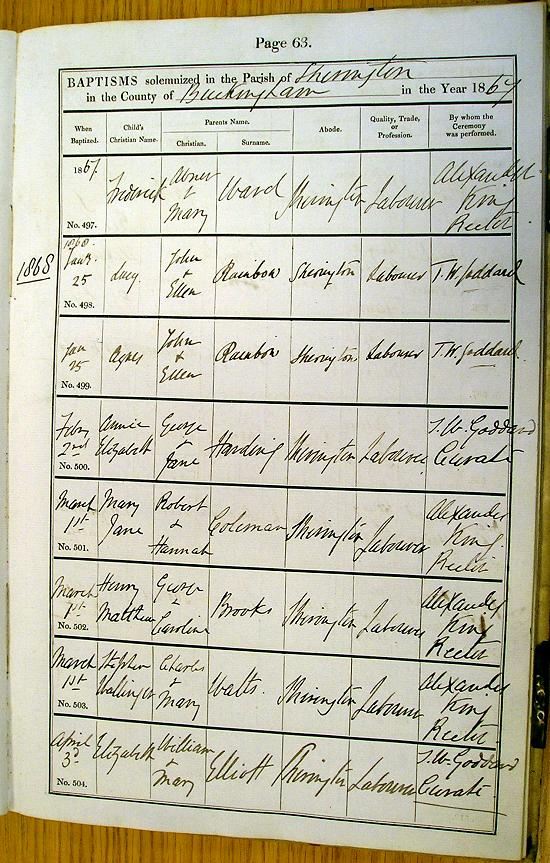 Page 63.
BAPTISMS solemnized in the Parish of Sherington
in the County of Buckingham in the Year 1867
When Baptized. Child's Christian Name. Parents Name. Christian. Surname. Abode. Quality, Trade, or Profession. By whom the Ceremony was performed.
1867. Frederick Abner & Mary Ward Sherington Labourer Alexander King Rector
No. 497.
1868
1868 Jany 25 Lucy John & Ellen Rainbow Sherington Labourer T. W. Goddard
No. 498.
Jan 25 Agnes John & Ellen Rainbow Sherington Labourer T. W. Goddard
No. 499.
Feby 2nd Annie Elizabeth George & Jane Harding Sherington Labourer T. W. Goddard Curate
No. 500.
March 1st Mary Jane Robert & Hannah Coleman Sherington Labourer Alexander King Rector
No. 501.
March 1st Henry Matthew George & Caroline Brooks Sherington Labourer Alexander King Rector
No. 502.
March 1st Stephen Charles & Mary Watts. Sherington Labourer Alexander King Rector
No. 503.
April 3d Elizabeth William & Mary Elliott Sherington Labourer T. W. Goddard Curate
No. 504.